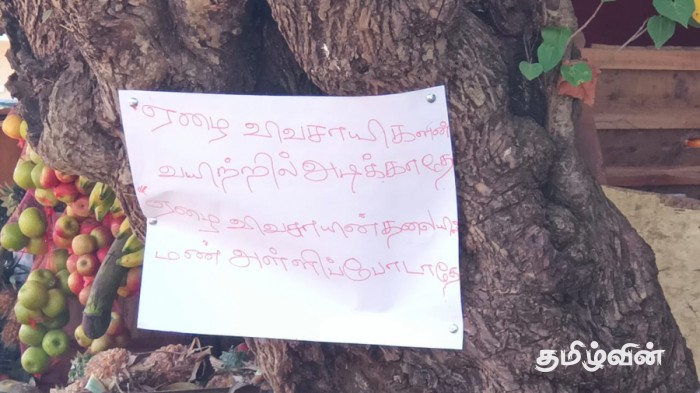 "ஏழை விவசாயிகளின்
வயிற்றில் அடிக்காதே
"ஏழை விவசாயின் தலையில்
மண் அள்ளிப்போடாதே
தமிழ்வின்